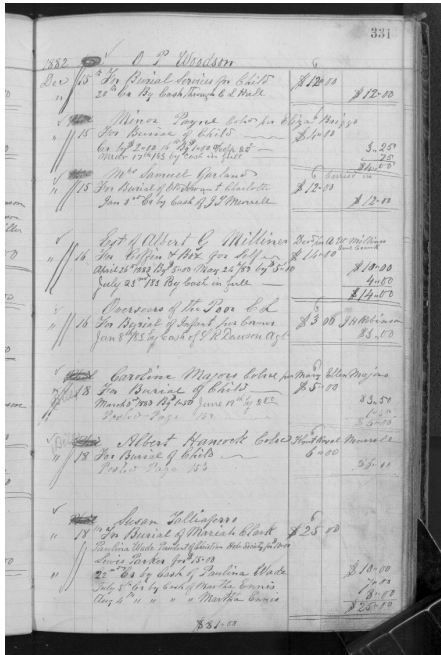 331
1882 O P Woodson
Dec 15 For Burial Services for Child $12-00
20th Cr By Cash through C L Hall $12-00
Minor Payne Cold for Eliza Briggs
" 15 For Burial of Child $4-00
3-25
Cr by Cash in full 75
$4-00
Mrs Samuel Garland
" 15 For Burial of Charlotte $12-00
Jan 3rd Cr by Cash of J T Murrell $12-00
Est of Albert G Milliner
" 16 For Coffin & Box for Self $14-00
April 26th 1883 By 5-00 May 24 /83 by 5-00 $10-00
July 23rd /83 By Cash in full 4-00
$14-00
Overseers of the Poor
" 16 For Burial of Infant $3 00
Jan 8th /83 by Cash of Dawson Agt $3-00
Caroline Majors Cold for Mary Ellen Majors
" 18 For Burial of Child $5-00
March 3rd 1883 By 1-50 June $3-50
Posted Page
$5-00
Albert Hancock Cold Murrell
" 18 For Burial of Child 6-00
Posted Page 153 $6-00
Susan Talliaferro
" 18 For Burial of Mariah Clark $25-00
Paulina Wade President of Christian Society for 10-00
Lewis Parker for 15-00
" 22nd Cr by Cash of Paulina Wade $10-00
July 5th Cr by Cash of Martha Ennis 7-00
Aug 4th " " " " Martha Ennis 8-00
$25-00
$81-00